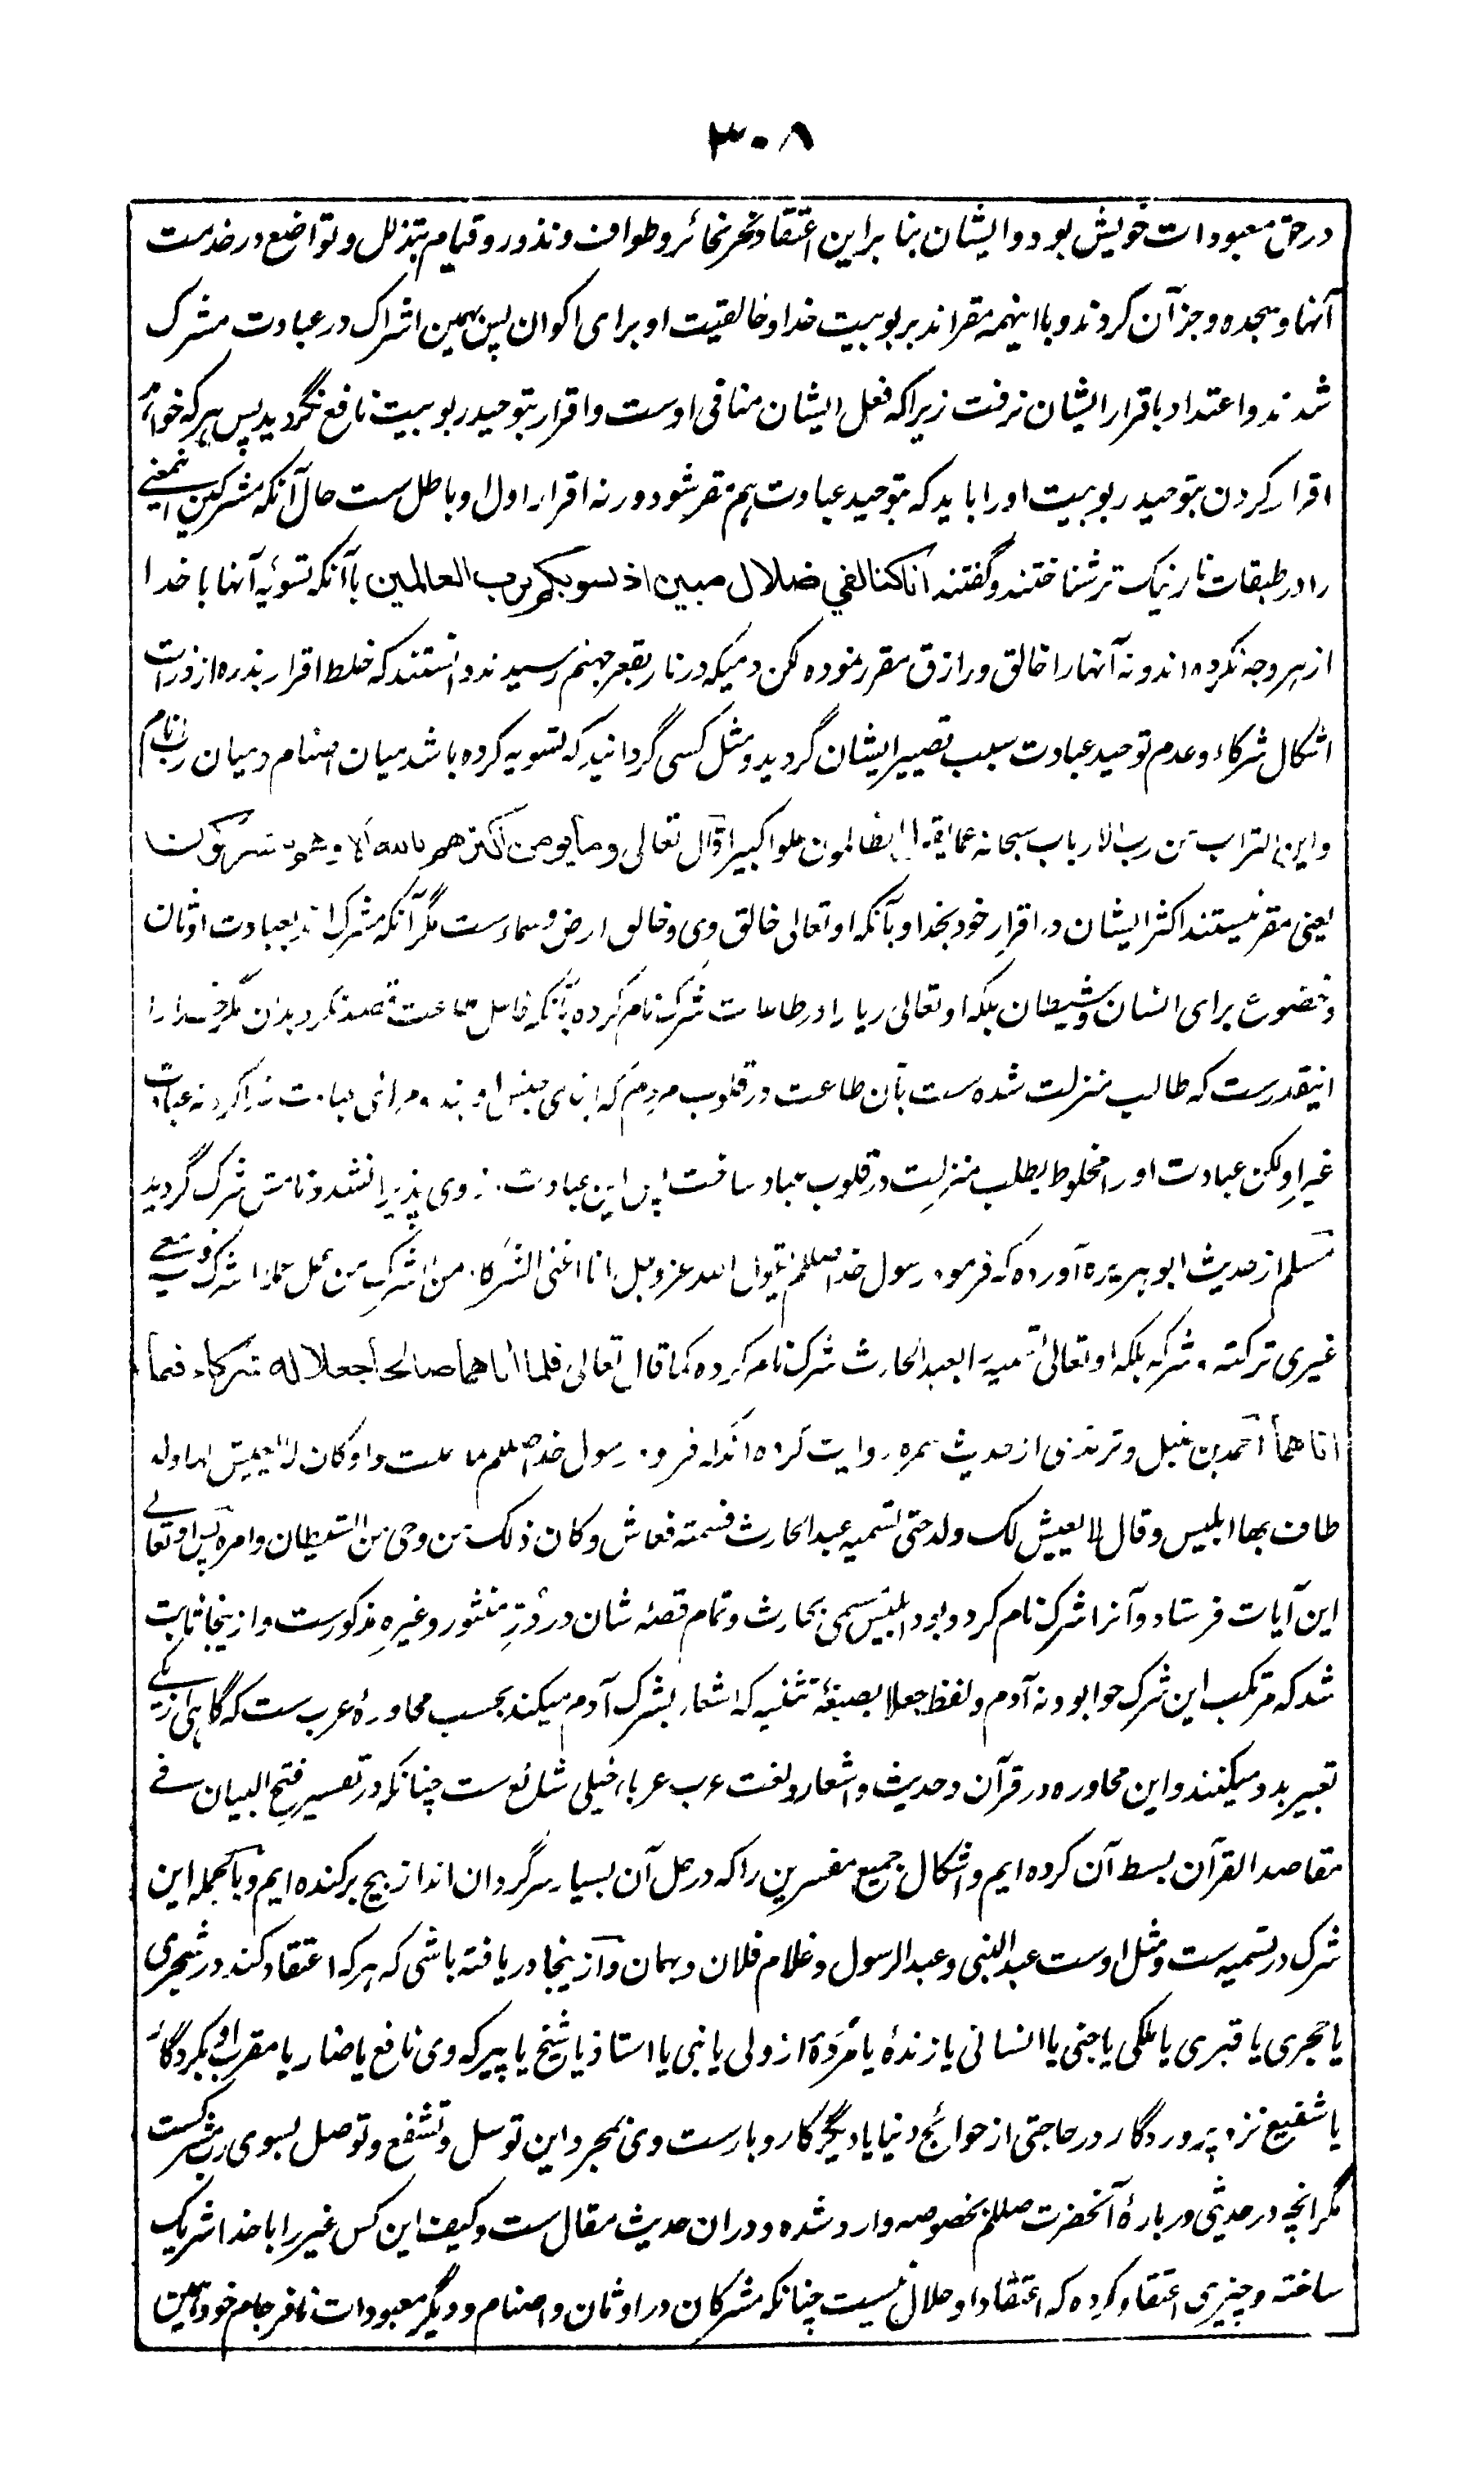 ۳۰۸
در حق معبودات خویش بود و ایشان بنا بر این اعتقاد نحر نحائر و طواف و نذور و قیام بتذلل و تواضع در خدمت
آنها و سجده و جز آن کردند و با اینهمه مقراند بربوبیت خدا و خالقیت او برای اکوان پس بهمین اشراک در عبادت مشرک
شدند و اعتداد باقرار ایشان نرفت زیرا که فعل ایشان منافی اوست و اقرار بتوحید ربوبیت نافع نگردید پس هر که خواهد
اقرار کردن بتوحید ربوبیت او را باید که بتوحید عبادت هم مقر شود ورنه اقرار اول او باطل ست حال آنکه مشرکین اینمعنے
را در طبقات نار نیک تر شناختند و گفتند انا کنا لفي ضلال مبین اذ نسویکم برب العالمین با آنکه تسوئیه آنها با خدا
از هر وجه نکرده اند و نه آنها را خالق و رازق مقرر نموده لکن دمیکه در نار بقعر جهنم رسیدند دانستند که خلط اقرار بذره از ذرات
اشکال شرکاء و عدم توحید عبادت سبب تصییر ایشان گردید و مثل کسی گردانید که تسویه کرده باشد میان اصنام و میان رب انام
و این التراب من رب الارباب سبحانه عما یقول الظالمون علوا کبیرا قال تعالی وما یومن اکثرهم بالله الا وهم مشرکون
یعنی مقر نیستند اکثر ایشان در اقرار خود بخدا و بآنکه او تعالی خالق وی و خالق ارض و سماء ست مگر آنکه مشرک اند بعبادت اوثان
و خضوع برای انسان و شیطان بلکه او تعالی ریا را در طاعات شرک نام کرده با آنکه فاعل طاعت قصد نکرد بدان مگر خدا را
اینقدرست که طالب منزلت شده ست بآن طاعت در قلوب مردم که ابنای جنس اویند و مرائی عبادت خدا کرد نه عبادت
غیر او لکن عبادت او را مخلوط بطلب منزلت در قلوب عباد ساخت پس این عبادت ازوی پذیرا نشد و نامش شرک گردید
مسلم از حدیث ابوهریره آورده که فرمود رسول خدا صللم یقول الله عز و جل انا اغنی الشرکاء من الشرک من عمل عملا اشرک فیه معے
غیری ترکته و شرکه بلکه او تعالی تسمیه را بعبد الحارث شرک نام کرده کما قال تعالی فلما اتاهما صالحا جعلا له شرکاء فیما
اتاهما احمد بن حنبل و ترمذی از حدیث سمره روایت کرده اند که فرمود رسول خدا صللم لما حملت حوا و کان لا یعیش لها ولد
طاف بها ابلیس و قال لا یعیش لک ولد حتی تسمیه عبد الحارث فسمته فعاش و کان ذلک من وحی من الشیطان و امره پس او تعالے
این آیات فرستاد و آنرا شرک نام کرد و بود ابلیس مسمی بحارث و تمام قصهٔ شان در درّ منثور و غیره مذکورست و از ینجا ثابت
شد که مرتکب این شرک حوا بود نه آدم و لفظ جعلا بصیغهٔ تثنیه که اشعار بشرک آدم میکند بحسب محاورهٔ عرب ست که گاهی از یکے
تعبیر بدو میکنند و این محاوره در قرآن و حدیث و اشعار و لغت عرب عرباء خیلی شائع ست چنانکه در تفسیر فتح البیان فے
مقاصد القرآن بسط آن کرده ایم و اشکال جمیع مفسرین را که در حل آن بسیار سرگردان اند از بیخ برکنده ایم و بالجمله این
شرک در تسمیه ست و مثل اوست عبد النبی و عبد الرسول و غلام فلان و بهمان و از ینجا دریافته باشی که هر که اعتقاد کند در شجری
یا حجری یا قبری یا ملکی یا جنی یا انسانی یا زندهٔ یا مردهٔ از ولی یا نبی یا استاذ یا شیخ یا پیر که وی نافع یا ضار یا مقرب او بکردگار
یا شفیع نزد پروردگار در حاجتی از حوائج دنیا یا دیگر کاروبارست وی بمجرد این توسل و تشفع و توصل بسوی رب مشرکست
مگر انچه در حدیثی دربارهٔ آنحضرت صللم بخصوصه وارد شده و دران حدیث مقال ست و کیف این کس غیر را با خدا شریک
ساخته و چیزی اعتقاد کرده که اعتقاد او حلال نیست چنانکه مشرکان در اوثان و اصنام و دیگر معبودات نافرجام خود همین